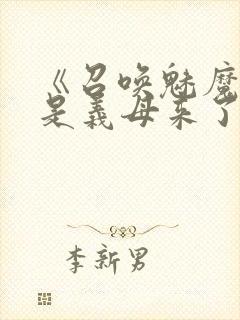 《召唤魅魔
是义母来了
李新男